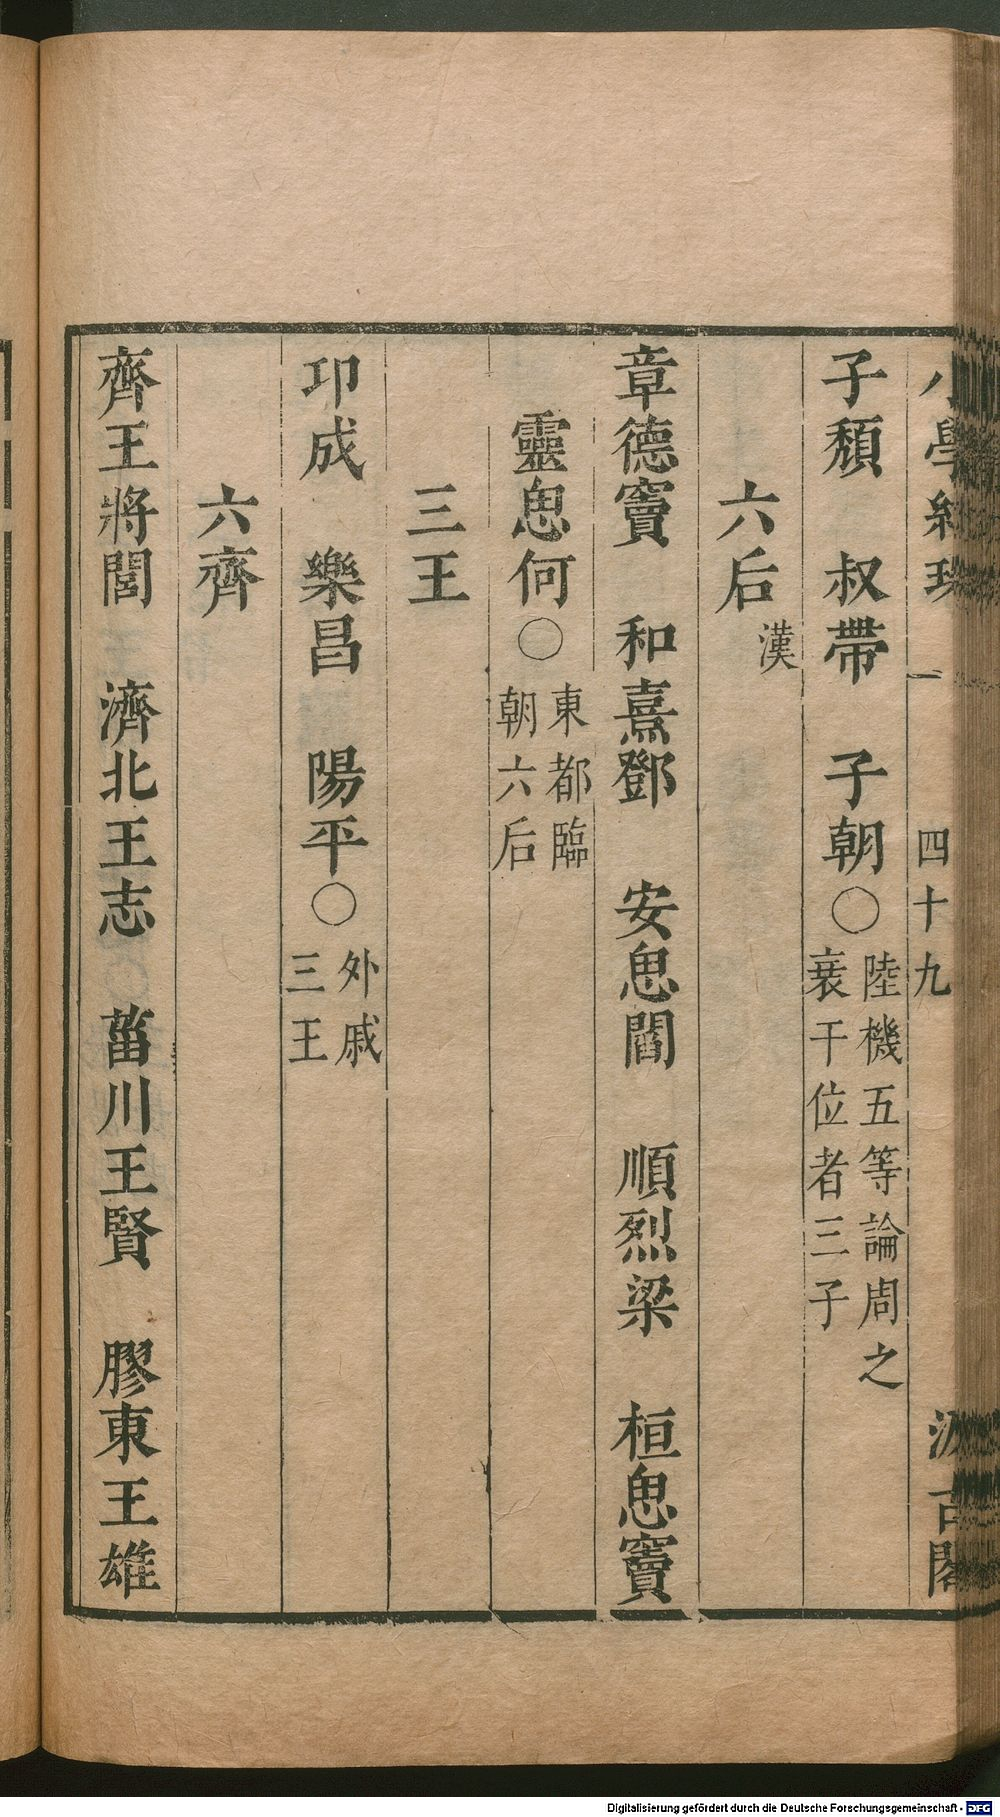 小學紺珠 一 四十九 汲古閣
子頹 叔帶 子朝〇陸機五等論周之衰干位者三子
六后漢
章德竇 和熹鄧 安思閻 順烈梁 桓思竇
靈思何〇東都臨朝六后
三王
邛成 樂昌 陽平〇外戚三王
六齊
齊王將閭 濟北王志 菑川王賢 膠東王雄
Digitalisierung gefördert durch die Deutsche Forschungsgemeinschaft - DFG